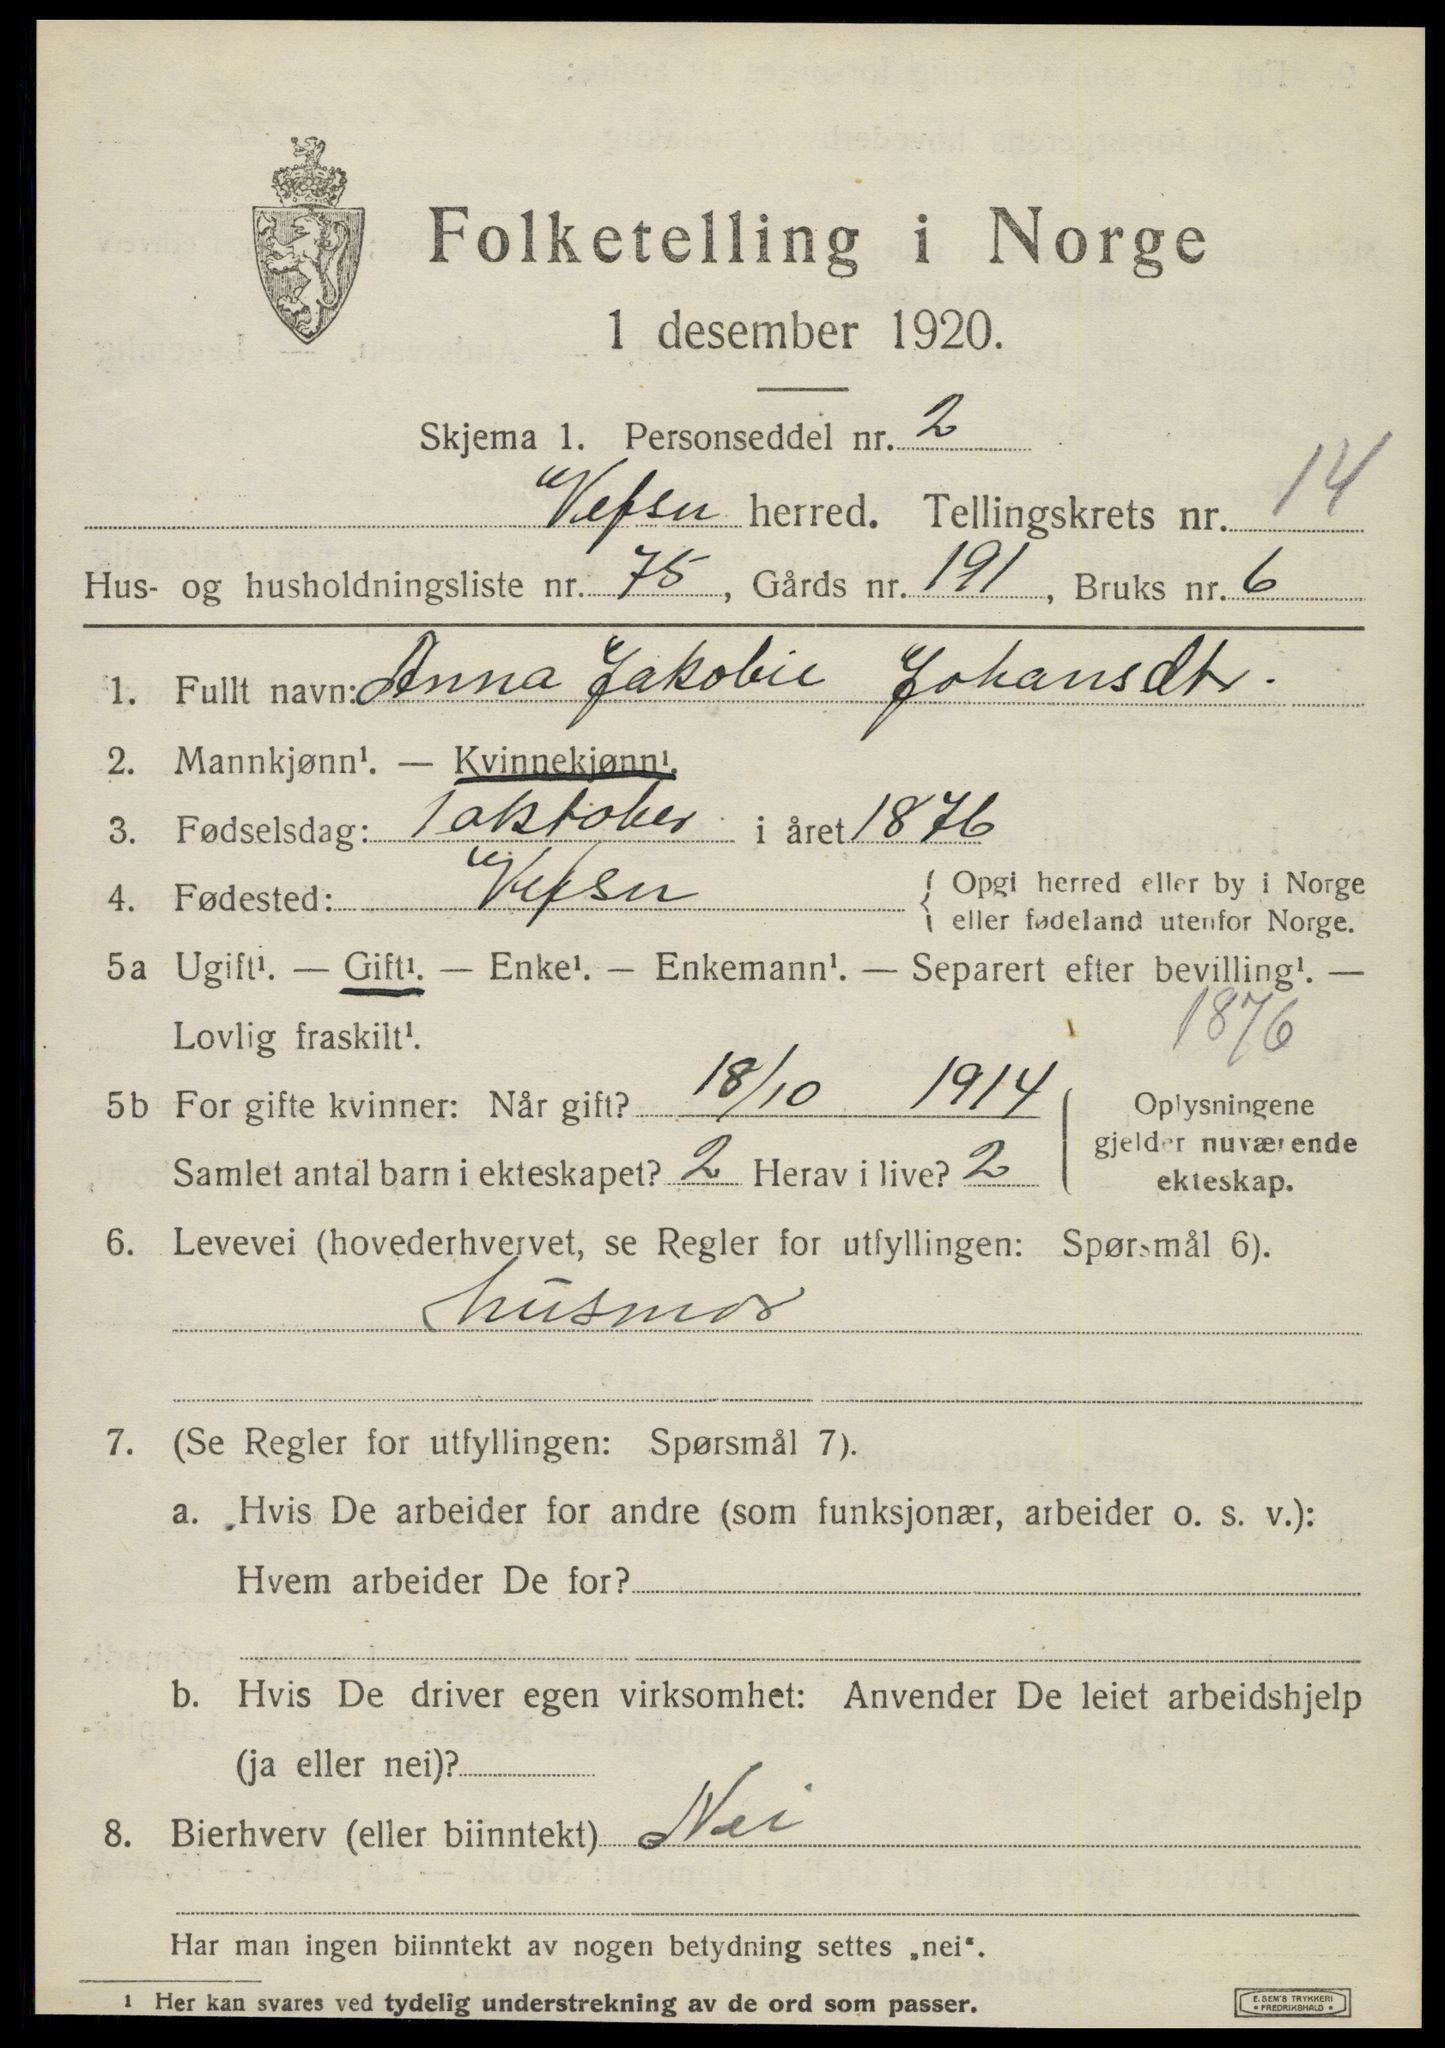 Folketelling i Norge
1 desember 1920.
Skjema 1. Personseddel nr. 2
Vefsn herred. Tellingskrets nr. 14
Hus- og husholdningsliste nr. 75, Gårds nr. 191, Bruks nr. 6
1. Fullt navn: Anna Jakobie Johansdtr.
2. Mannkjønn¹. — Kvinnekjønn¹.
3. Fødselsdag: 1 oktober i året 1876
4. Fødested: Vefsn { Opgi herred eller by i Norge
eller fødeland utenfor Norge.
5a Ugift¹. — Gift¹. — Enke¹. — Enkemann¹. — Separert efter bevilling¹. —
Lovlig fraskilt¹. 1876
5b For gifte kvinner: Når gift? 18/10 1914
Samlet antal barn i ekteskapet? 2 Herav i live? 2
Oplysningene
gjelder nuværende
ekteskap.
6. Levevei (hovederhvervet, se Regler for utfyllingen: Spørsmål 6).
husmor
7. (Se Regler for utfyllingen: Spørsmål 7).
a. Hvis De arbeider for andre (som funksjonær, arbeider o. s. v.):
Hvem arbeider De for?
b. Hvis De driver egen virksomhet: Anvender De leiet arbeidshjelp
(ja eller nei)?
8. Bierhverv (eller biinntekt) Nei
Har man ingen biinntekt av nogen betydning settes „nei“.
1 Her kan svares ved tydelig understrekning av de ord som passer.
E. SEM'S TRYKKERI
* FREDRIKSHALD *